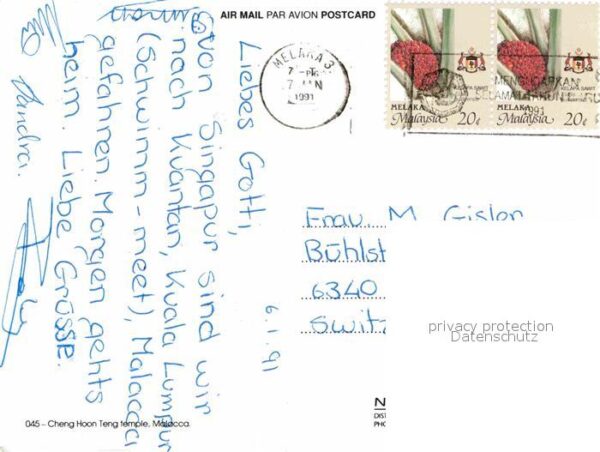 AIR MAIL PAR AVION POSTCARD
MELAKA 3
7 JN
1991
MELAKA
Malaysia 20¢
MELAKA
Malaysia 20¢
KELAPA SAWIT
1991
6.1.91
Liebes Gotti,
von Singapur sind wir
nach Kuantan, Kuala Lumpur
(Schwimm-meet), Malacca
gefahren. Morgen gehts
heim. Liebe Grüsse.
Sandra.
Frau M. Gisler
Bühlst
6340
Switz
privacy protection
Datenschutz
045 – Cheng Hoon Teng temple, Malacca